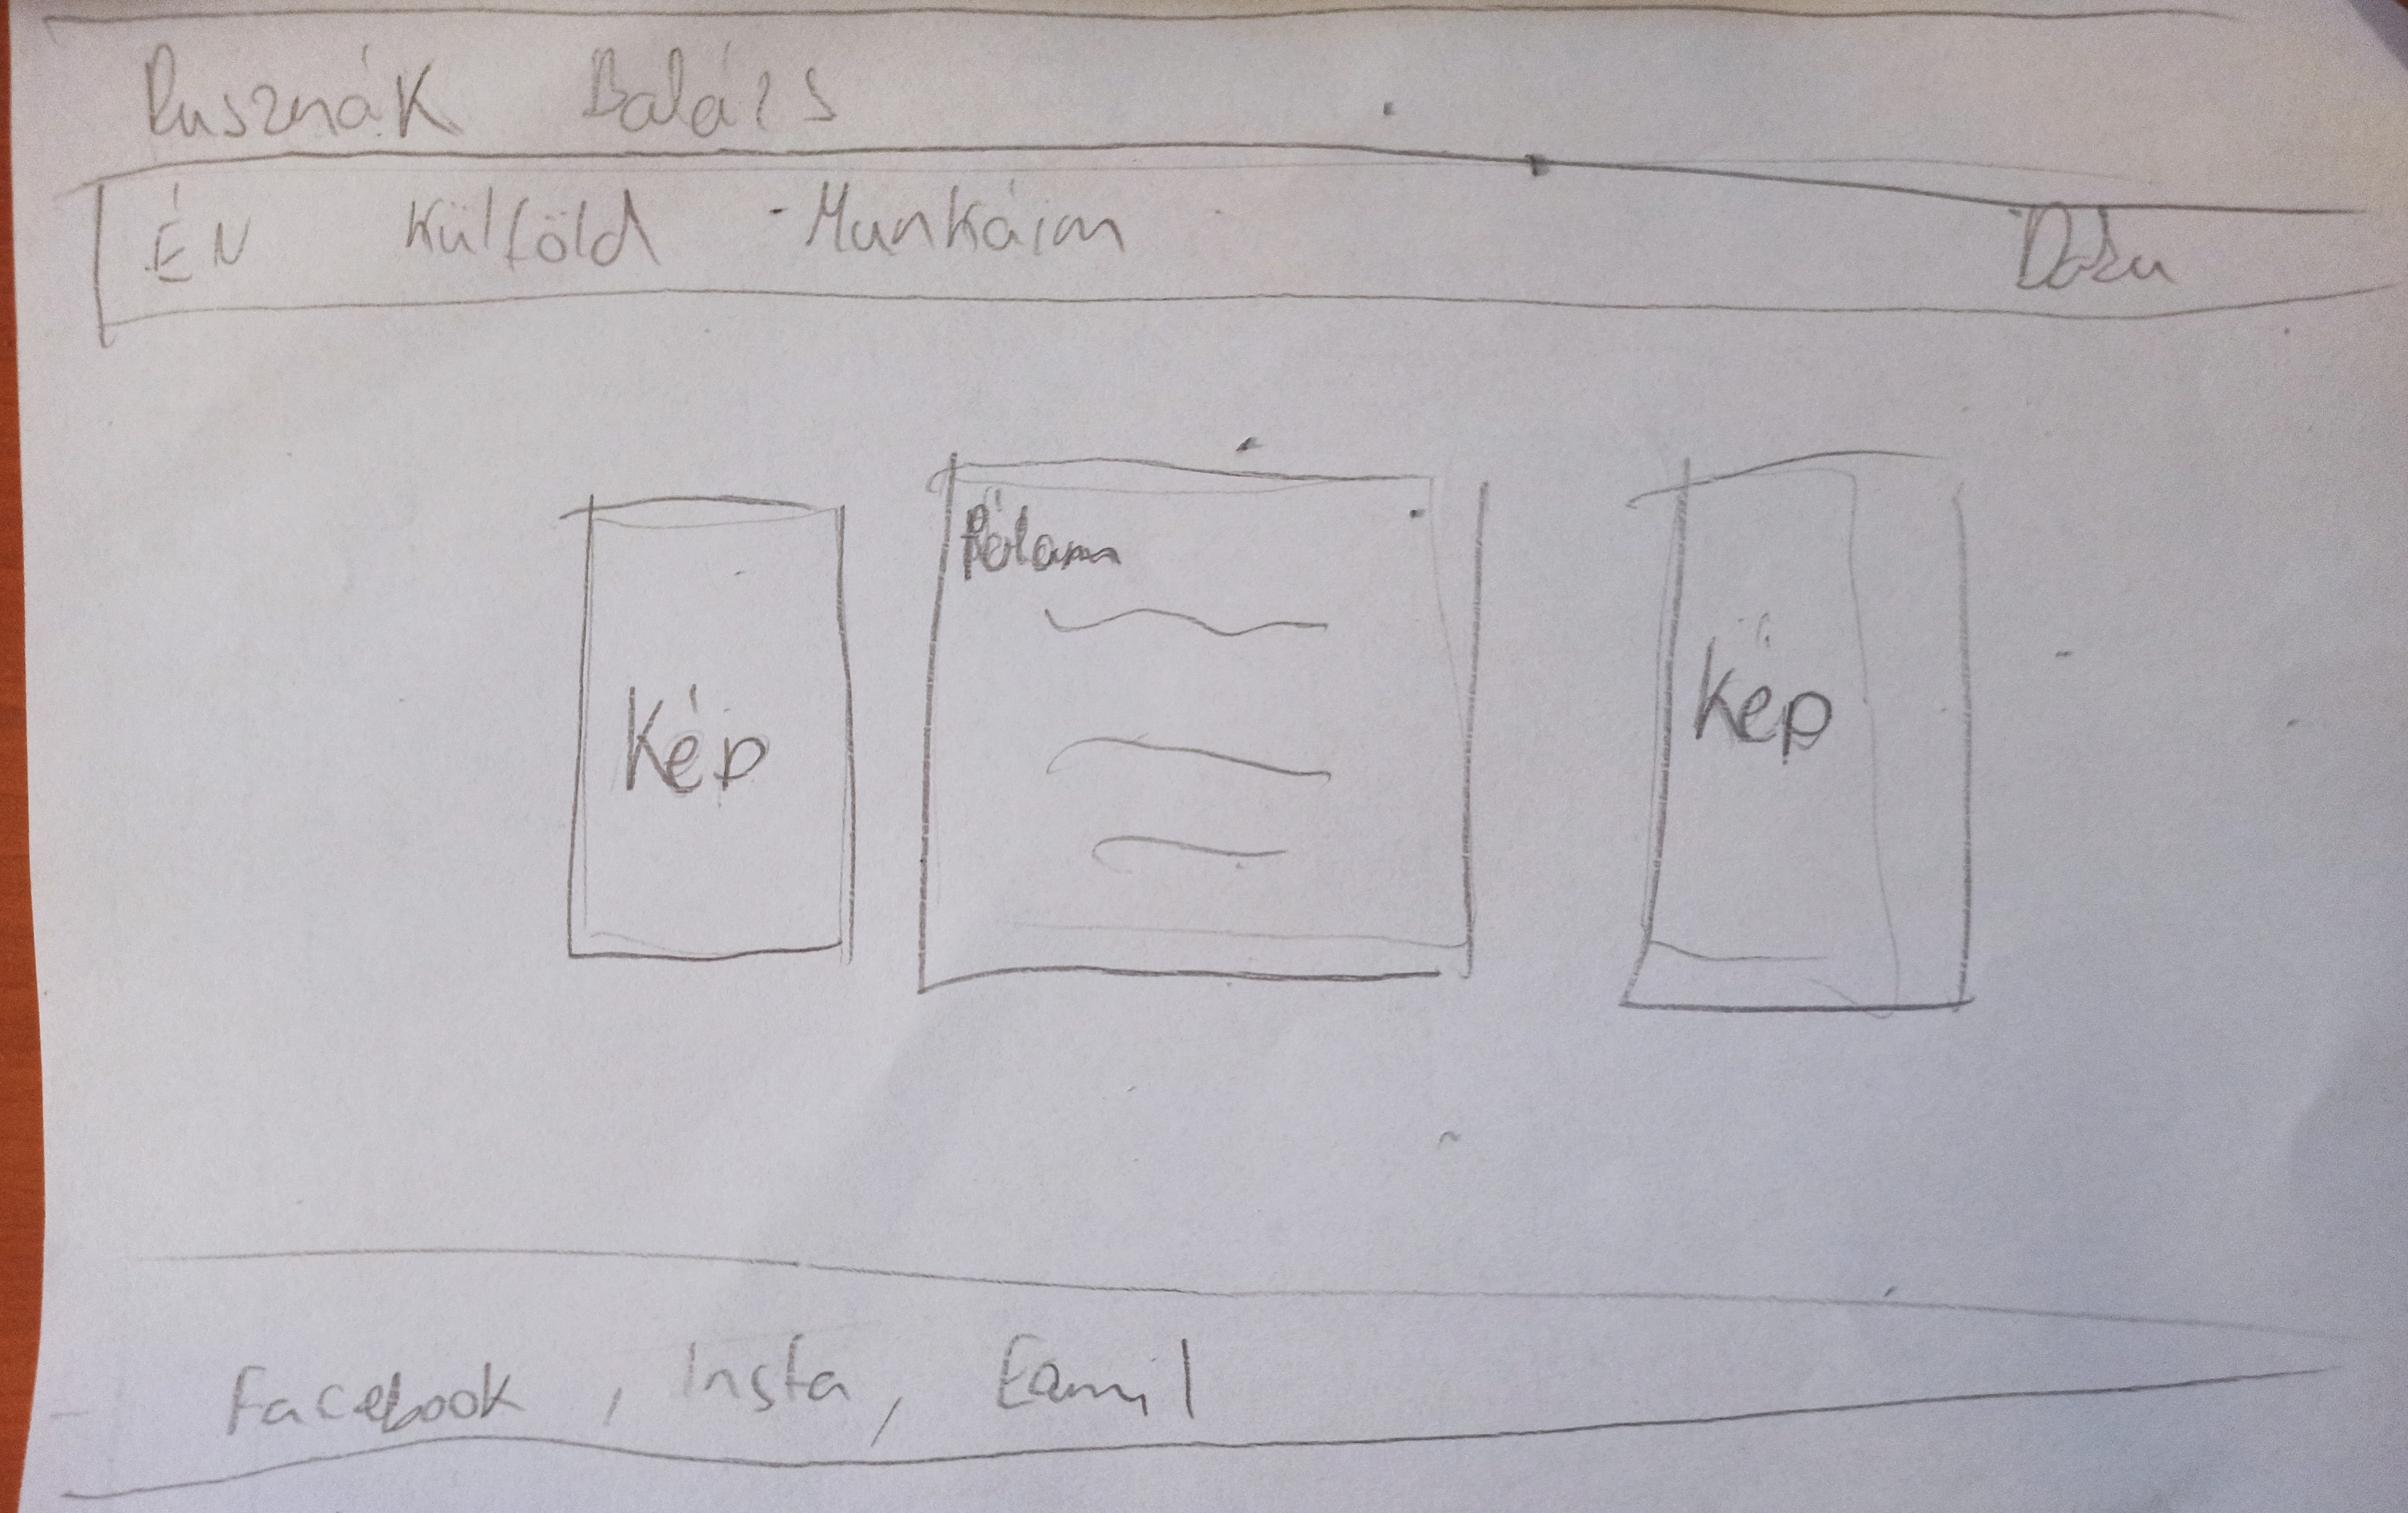 Rusznák Balázs
ÉN Külföld Munkáim Doku
Rólam
Kép
Kép
Facebook, Insta, Eamil